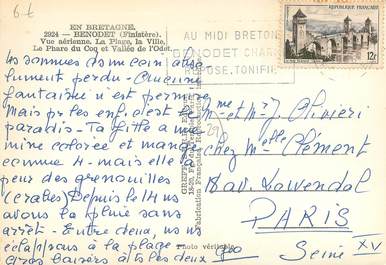 6 F
EN BRETAGNE.
2924 — BENODET (Finistère).
Vue aérienne, La Plage, la Ville,
Le Phare du Coq et Vallée de l'Odet.
AU MIDI BRETON
BENODET CHAR
REPOSE, TONIFIE
12F
Nous sommes ds un coin abso
lument perdu - Aucune
fantaisie n'est permise
Mais pr les enf. c'est le
paradis - Ta fitte a une
mine colorée et mange
comme 4 - mais elle a
peur des grenouilles
(crabes) Depuis le 14 ns
avons la pluie sans
arrêt - Entre deux, ns ns
échappons à la plage -
Gros baisers à ts les deux
Geo
Mme et Mr J. Olivieri
chez Melle Clément
av. Lowendal
PARIS
XV
Seine
Fabrication Française
Photo véritable